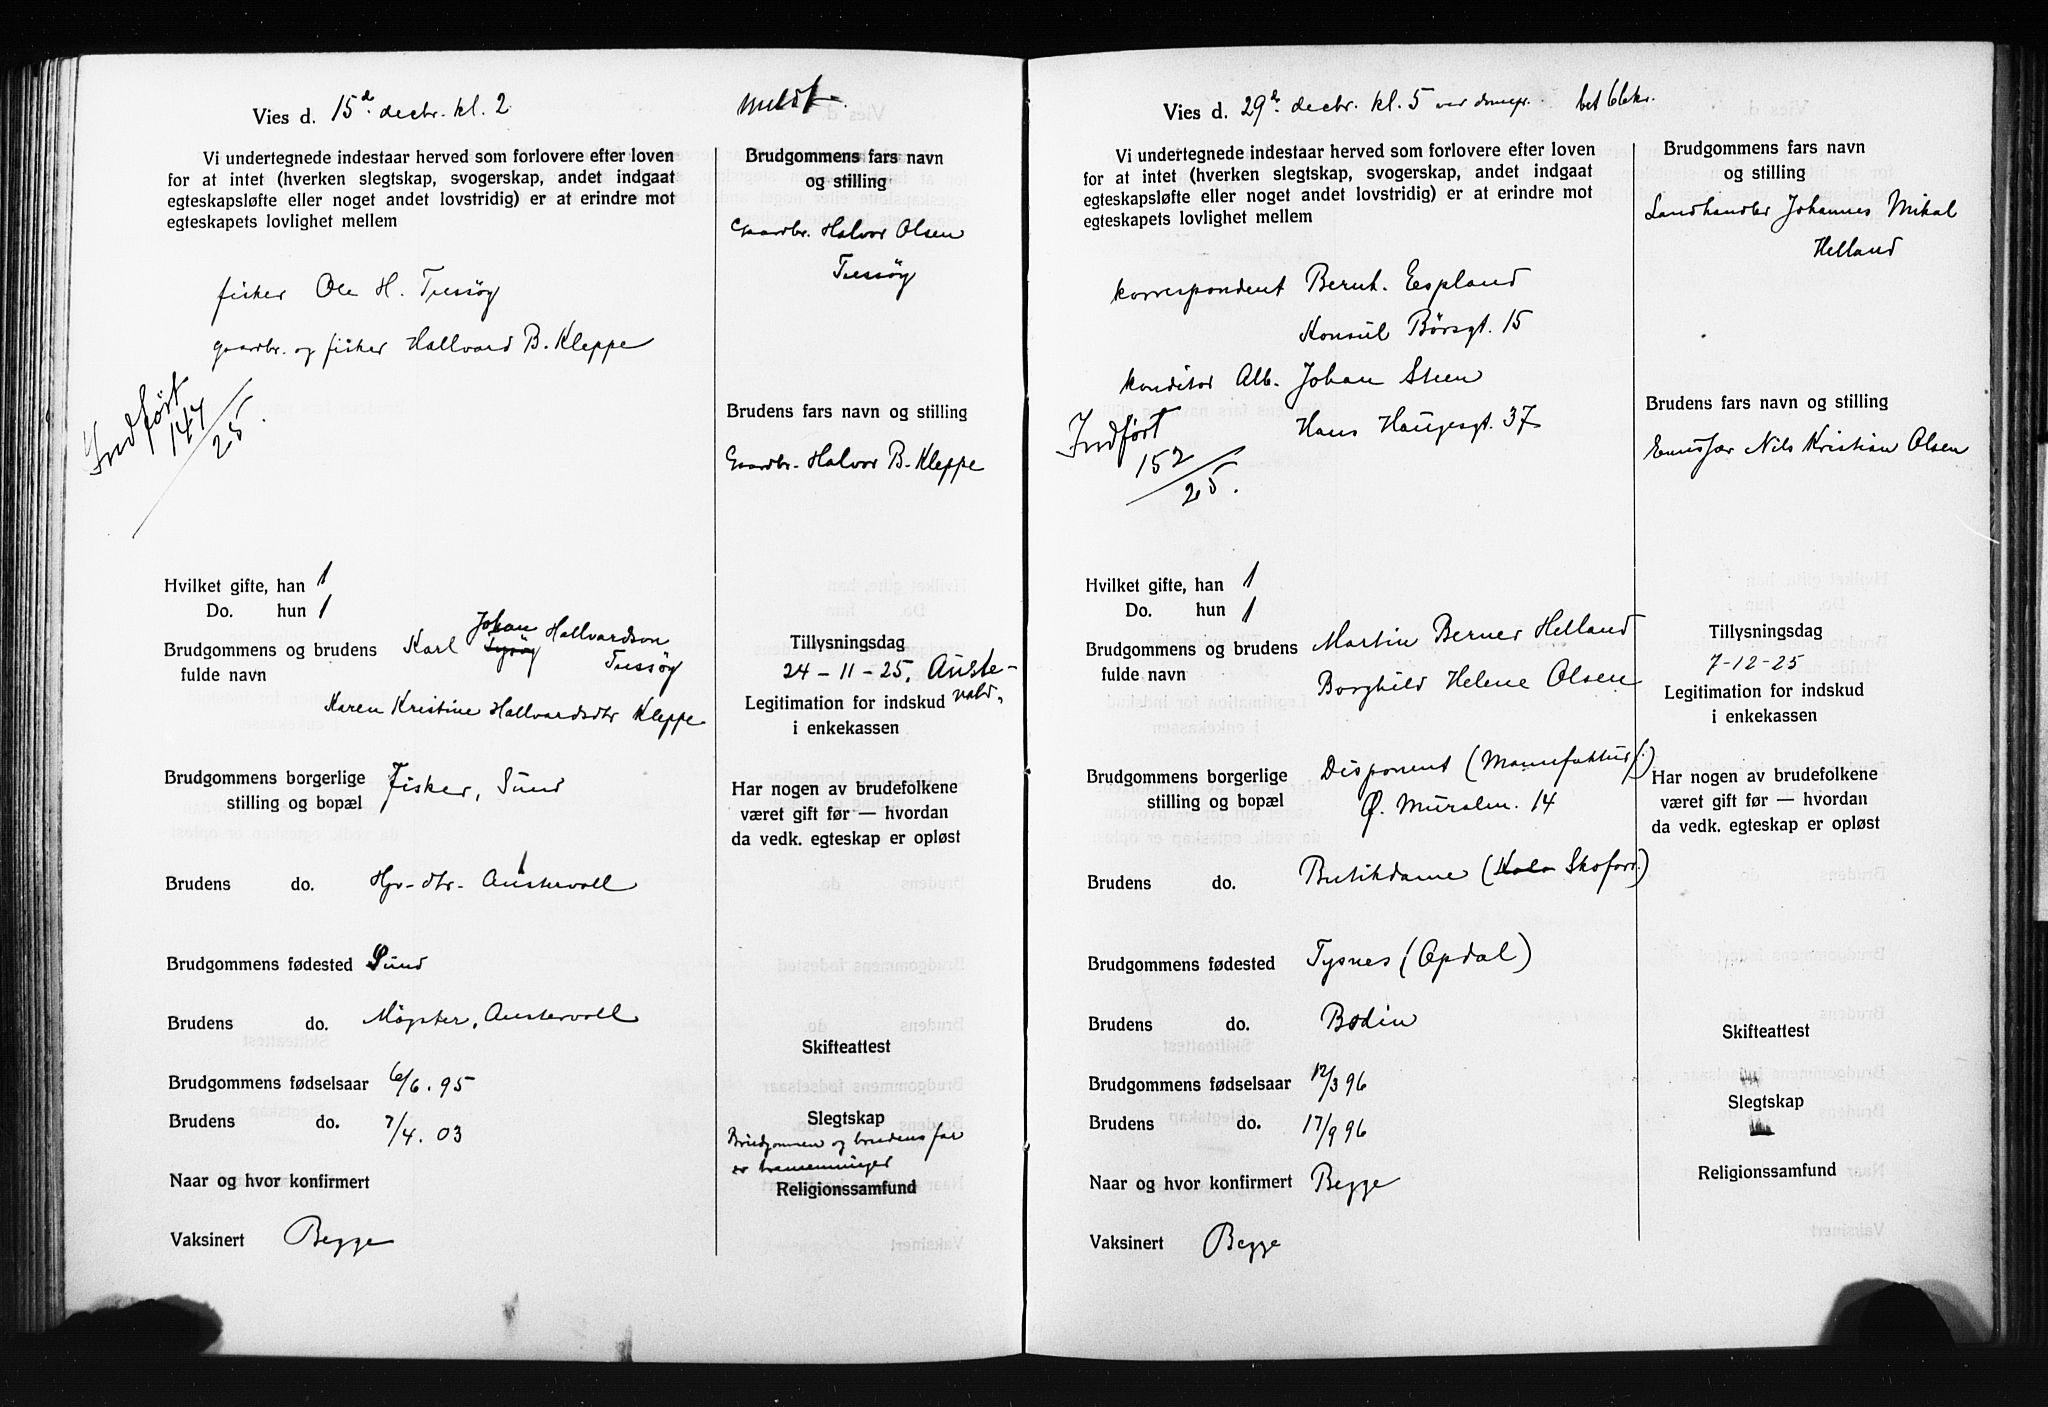 Vies d. 15d decbr. kl. 2
meldt
Vi undertegnede indestaar herved som forlovere efter loven
for at intet (hverken slegtskap, svogerskap, andet indgaat
egteskapsløfte eller noget andet lovstridig) er at erindre mot
egteskapets lovlighet mellem
fisker Ole H. Tussøy
gaardbr. og fisker Hallvard B. Kleppe
Indført
147
25.
Hvilket gifte, han 1
Do. hun 1
Johan Hallvardson
Brudgommens og brudens Karl
fulde navn Tussøy
Karen Kristine Hallvardsdtr Kleppe
Brudgommens borgerlige Fisker, Sund
stilling og bopæl
Brudens do. Hjv-dtr. Austervoll
Brudgommens fødested Sund
Brudens do. Møgster, Austervoll
Brudgommens fødselsaar 6/6. 95
Brudens do. 7/4. 03
Naar og hvor konfirmert
Vaksinert Begge
Brudgommens fars navn
og stilling
Gaardbr. Halvor Olsen
Tussøy
Brudens fars navn og stilling
Gaardbr. Halvor B. Kleppe
Tillysningsdag
24 - 11 - 25, Auste-
Legitimation for indskud vold.
i enkekassen
Har nogen av brudefolkene
været gift før — hvordan
da vedk. egteskap er opløst
Skifteattest
Slegtskap
Brudgommen og brudens far
er tremenninger
Religionssamfund
Vies d. 29d decbr. kl. 5 bet 66kr.
Vi undertegnede indestaar herved som forlovere efter loven
for at intet (hverken slegtskap, svogerskap, andet indgaat
egteskapsløfte eller noget andet lovstridig) er at erindre mot
egteskapets lovlighet mellem
korrespondent Bernt. Espland
Konsul Børsgt. 15
konditor Alb. Johan Steen
Hans Haugesgt. 37
Indført
152
25.
Hvilket gifte, han 1
Do. hun 1
Brudgommens og brudens Martin Berner Helland
fulde navn Borghild Helene Olsen
Brudgommens borgerlige Disponent (Manufaktur f.)
stilling og bopæl Ø. Muralm. 14
Brudens do. Butikdame (Skoforr.)
Brudgommens fødested Tysnes (Opdal)
Brudens do. Bodin
Brudgommens fødselsaar 12/3 96
Brudens do. 17/9 96
Naar og hvor konfirmert Begge
Vaksinert Begge
Brudgommens fars navn
og stilling
Landhandler Johannes Mikal
Helland
Brudens fars navn og stilling
Nils Kristian Olsen
Tillysningsdag
7-12-25
Legitimation for indskud
i enkekassen
Har nogen av brudefolkene
været gift før — hvordan
da vedk. egteskap er opløst
Skifteattest
Slegtskap
Religionssamfund